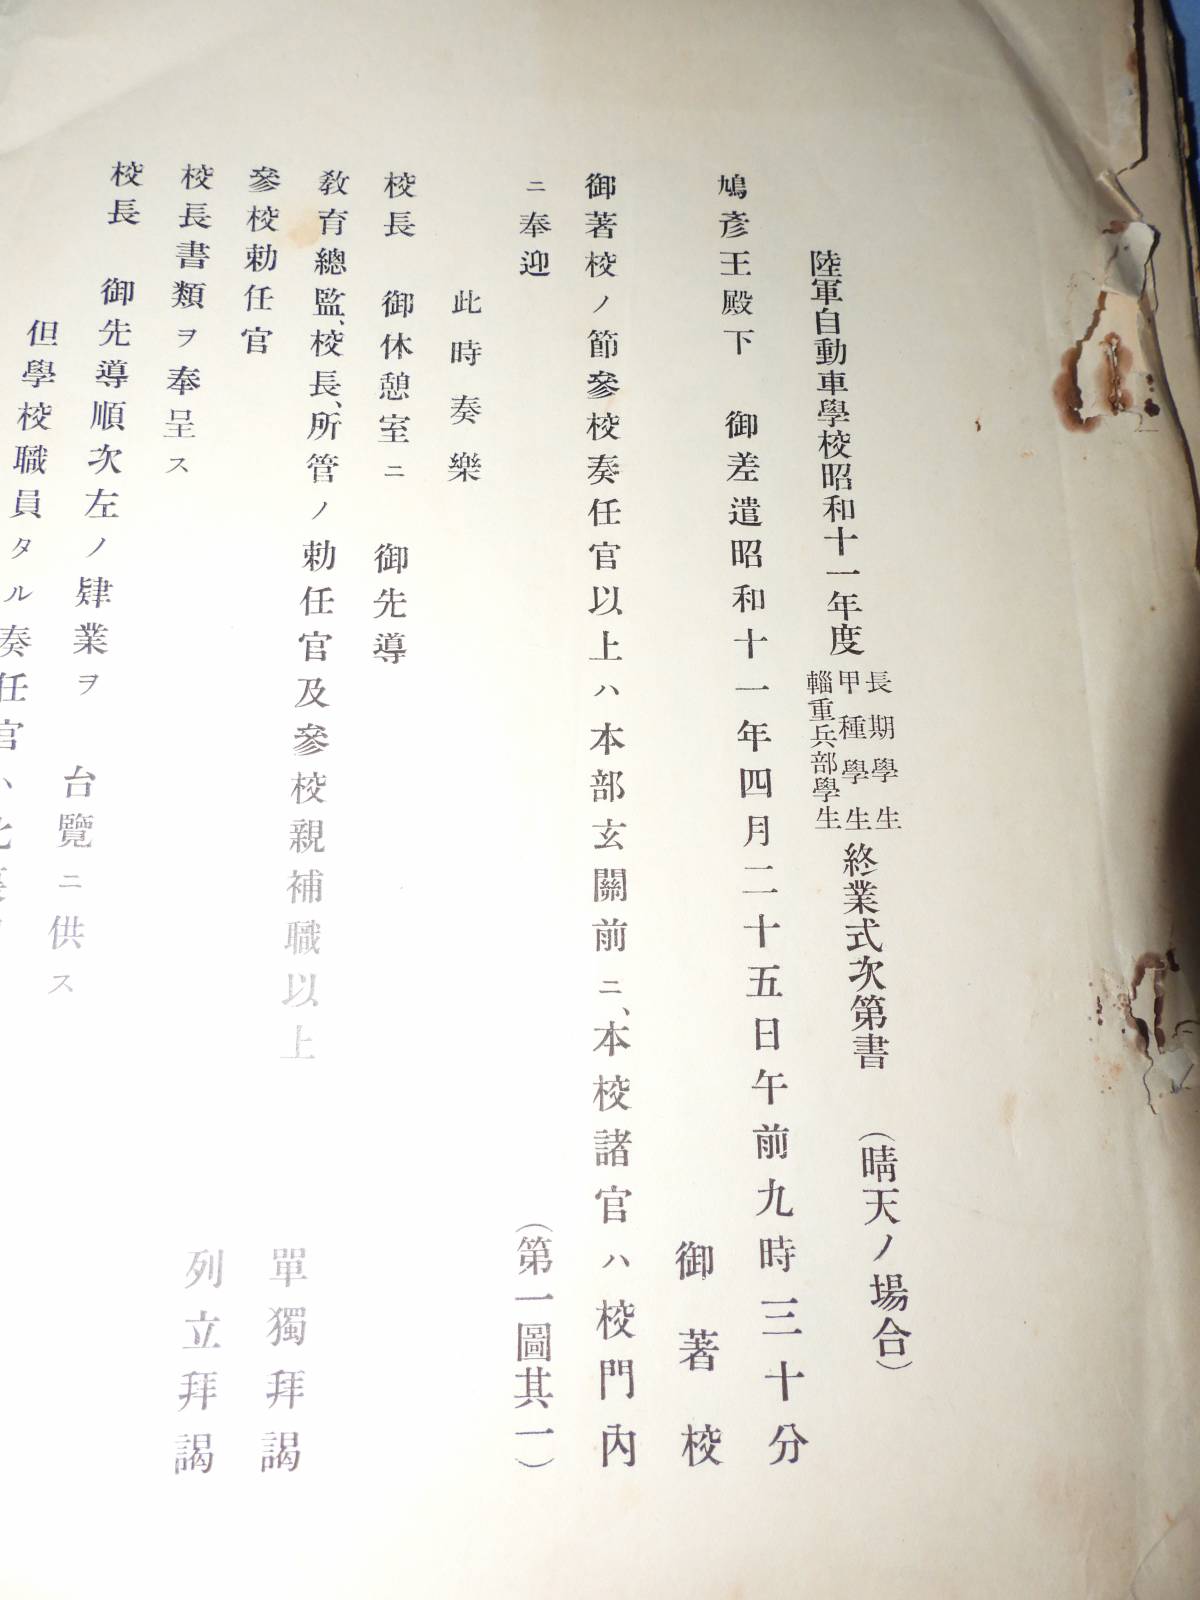 陸軍自動車學校昭和十一年度
長期學生
甲種學生
輜重兵部學生
終業式次第書　(晴天ノ場合)
鳩彥王殿下　御差遣昭和十一年四月二十五日午前九時三十分
御著校
御著校ノ節參校奏任官以上ハ本部玄關前ニ、本校諸官ハ校門內
ニ奉迎　(第一圖其一)
此時奏樂
校長　御休憩室ニ　御先導
敎育總監、校長、所管ノ勅任官及參校親補職以上　單獨拜謁
參校勅任官　列立拜謁
校長書類ヲ奉呈ス
校長　御先導順次左ノ肄業ヲ　台覽ニ供ス
但學校職員タル奏任官ハ